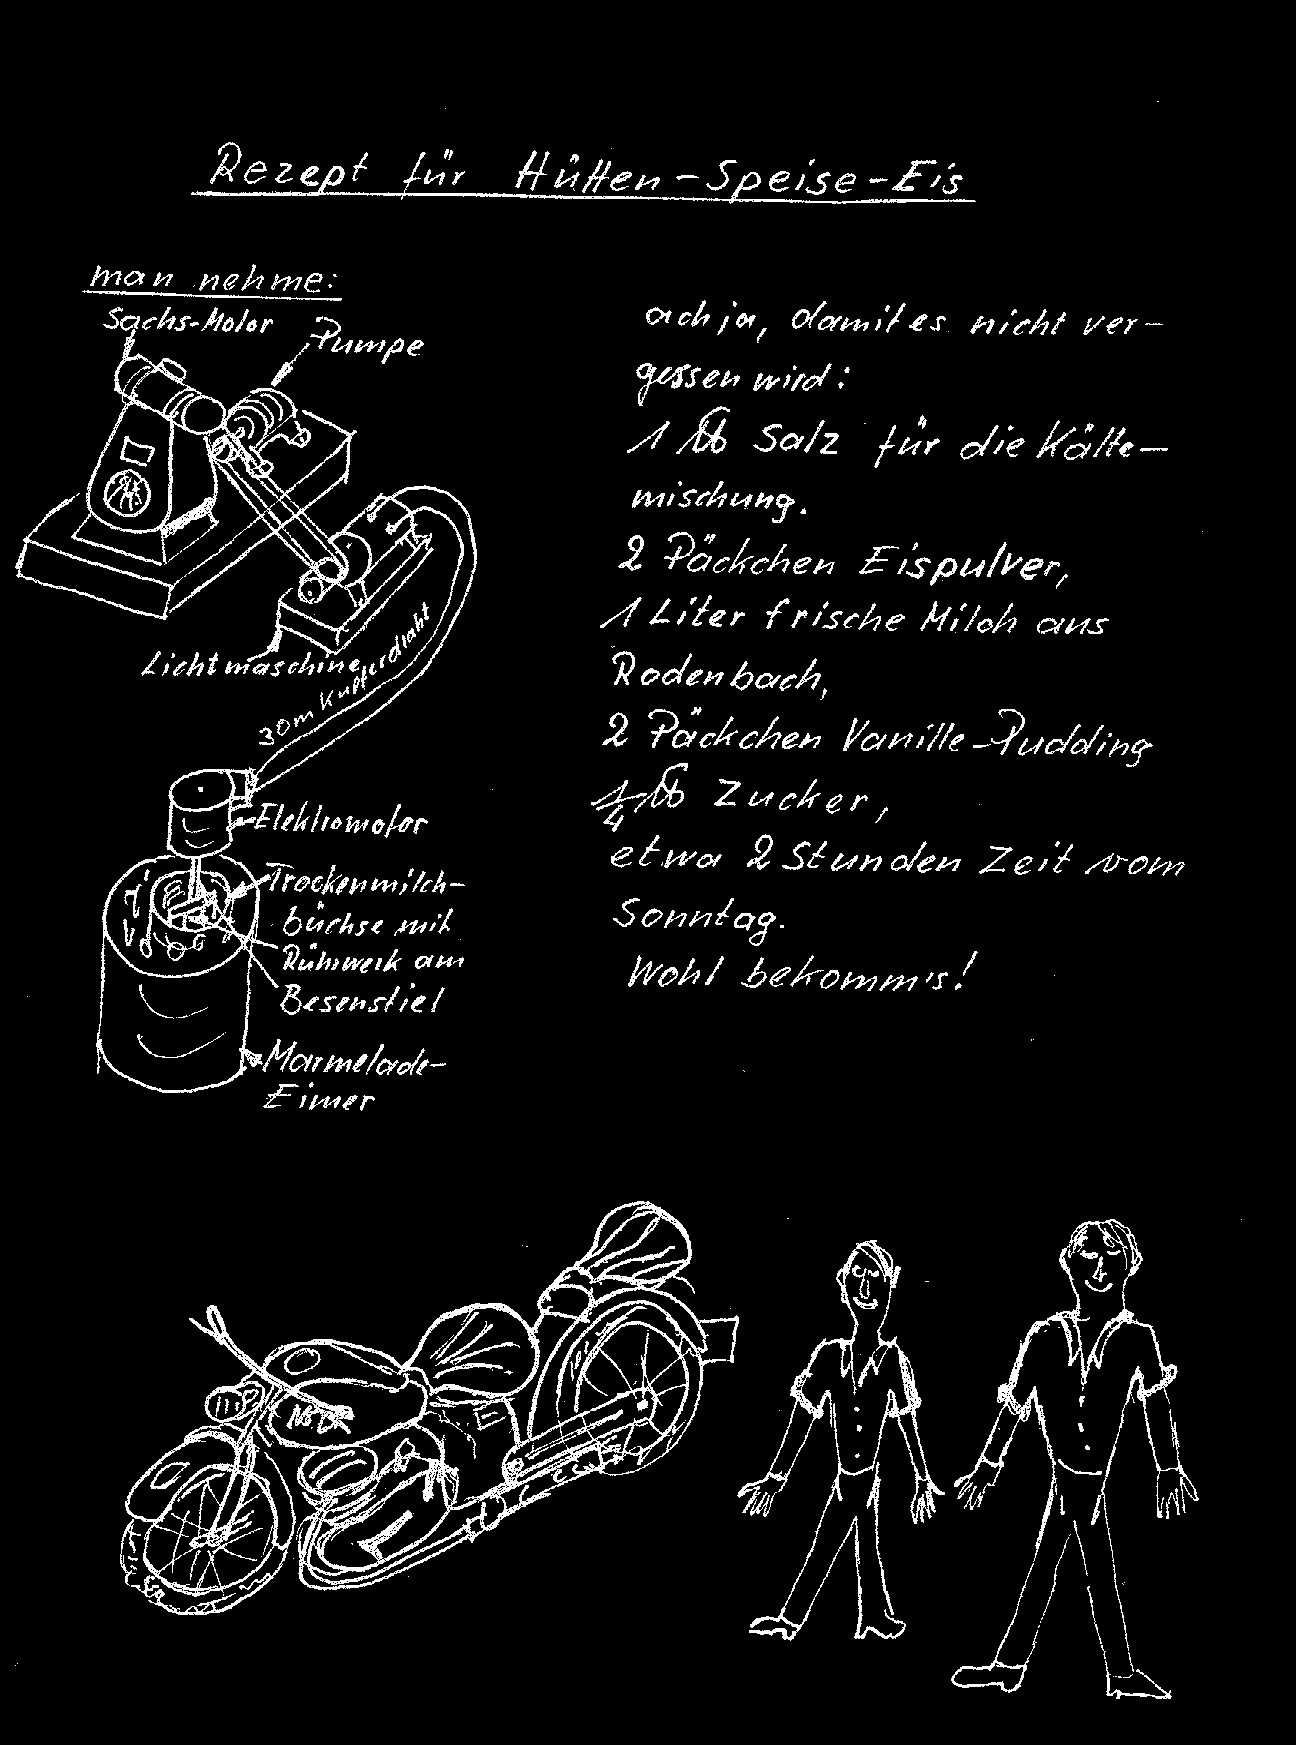 Rezept für Hütten-Speise-Eis
man nehme:
Sachs-Motor
Pumpe
Lichtmaschine
30m Kupferdraht
Elektromotor
Trockenmilch-
büchse mit
Rührwerk am
Besenstiel
Marmelade-
Eimer
ach ja, damit es nicht ver-
gessen wird:
1 ℔ Salz für die Kälte-
mischung.
2 Päckchen Eispulver,
1 Liter frische Milch aus
Rodenbach,
2 Päckchen Vanille-Pudding
1/4 ℔ Zucker,
etwa 2 Stunden Zeit vom
Sonntag.
Wohl bekomm's!